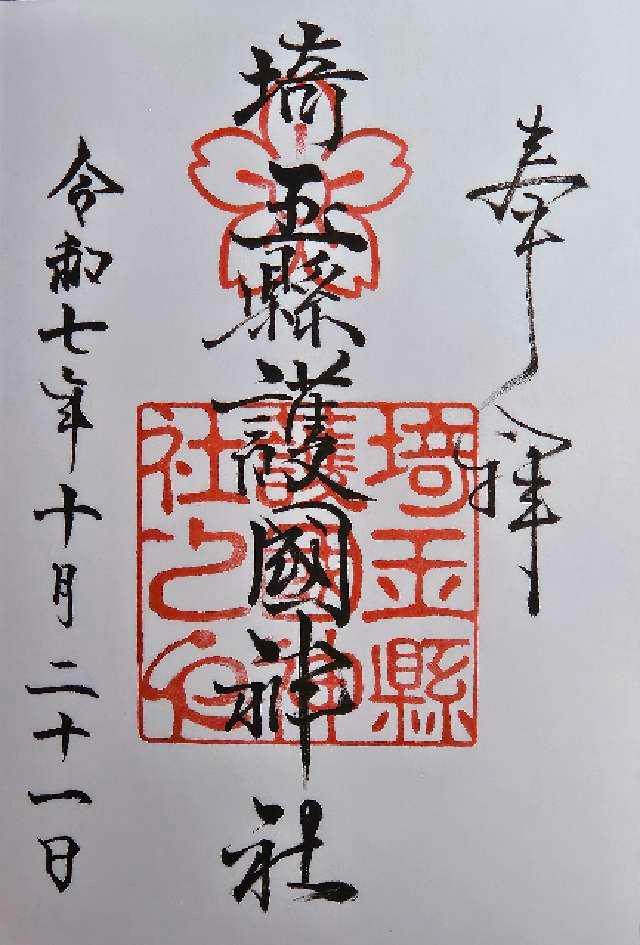 奉拝
埼玉縣護國神社
埼玉縣
護國神
社之印
令和七年十月二十一日